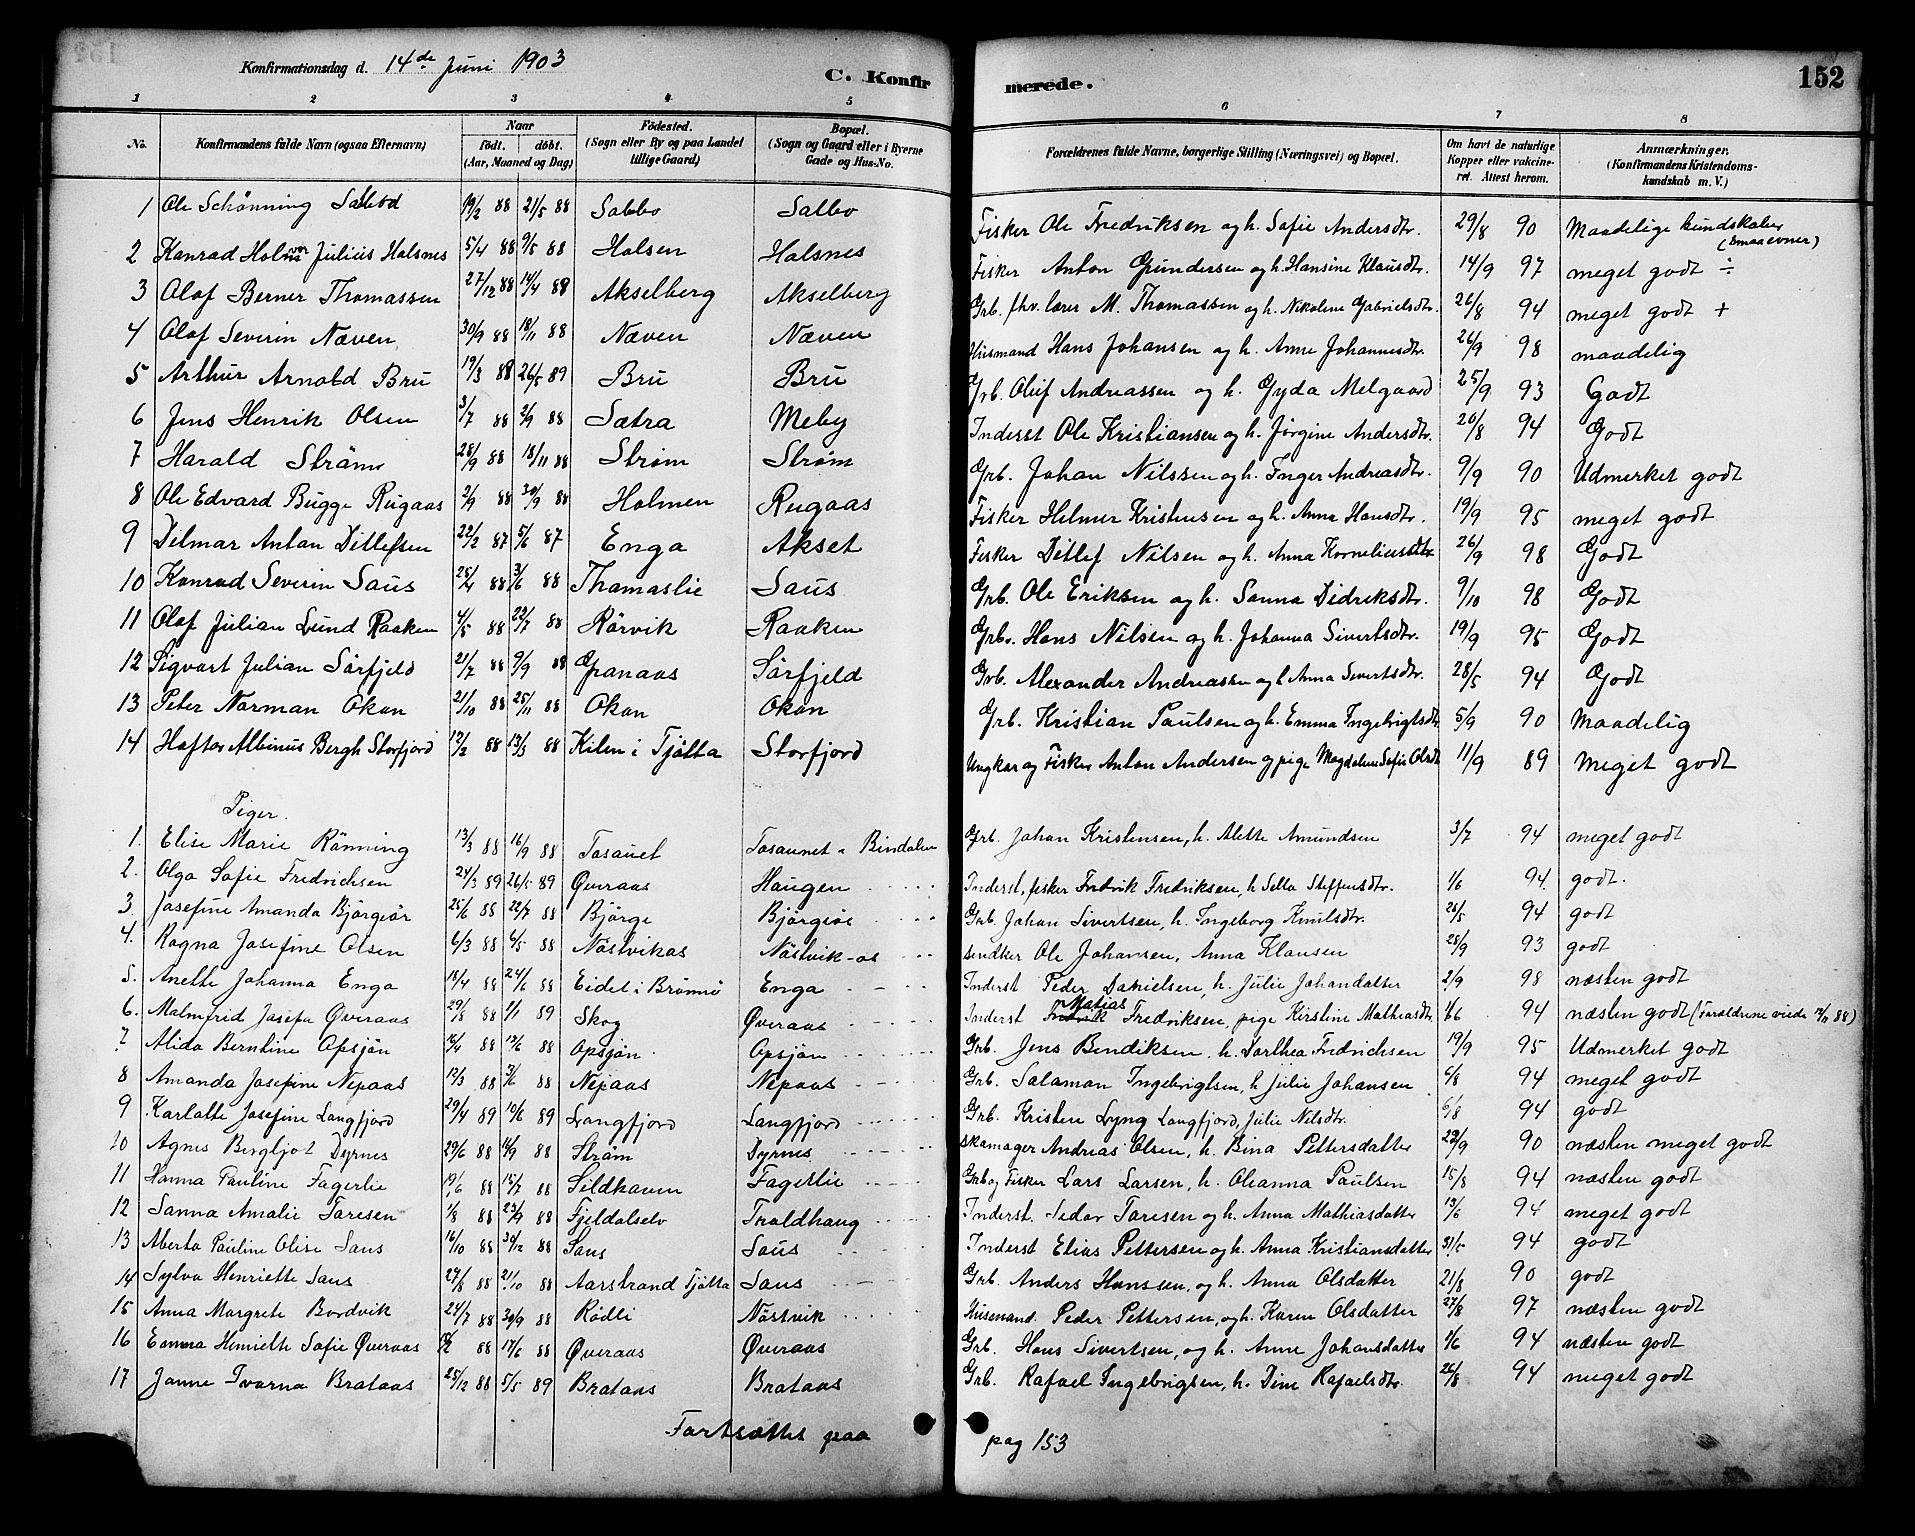 Konfirmationsdag d. 14de Juni 1903
C. Konfirmerede. 152
1 2 3 4 5 6 7 8
No. Konfirmandens fulde Navn (ogsaa Efternavn) Naar födt. döbt. (Aar, Maaned og Dag) Födested. (Sogn eller By og paa Landet tillige Gaard) Bopæl. (Sogn og Gaard eller i Byerne Gade og Hus-No. Forældrenes fulde Navne, borgerlige Stilling (Næringsvei) og Bopæl. Om havt de naturlige Kopper eller vakcineret. Attest herom. Anmærkninger. (Konfirmandens Kristendomskundskab m. V.)
1 Ole Schönning 19/2 88 21/5 88 Salbo Salbo Fisker Ole Fredriksen og h. Sofie Andersdtr. 29/8 90 Maadelige kundskaber (smaa evner)
2 Konrad Julius Halsnes 5/4 88 9/5 88 Holsen Halsnes Fisker Anton Gundersen og h. Hansine Klausdtr. 14/9 97 meget godt ÷
3 Olaf Berner Thomassen 27/12 88 14/4 88 Akselberg Akselberg Grb. fhv. lærer M. Thomassen og h. Nikoline Gabrielsdtr. 26/8 94 meget godt +
4 Olaf Severin Næven 30/9 88 18/11 88 Næven Næven Husmand Hans Johansen og h. Anne Johannesdtr. 26/9 98 maadelig
5 Arthur Arnold Bru 19/3 88 26/5 89 Bru Bru Grb. Oluf Andreassen og h. Gyda Melgaard 25/9 93 Godt
6 Jens Henrik Olsen 3/7 88 2/9 88 Sætra Meby Inderst Ole Kristiansen og h. Jørgine Andersdtr. 20/8 94 Godt
7 Harald Ström 28/9 88 18/11 88 Strøm Strøm Grb. Johan Nilssen og h. Inger Andreasdtr. 9/9 90 Udmerket godt
8 Ole Edvard Bugge Rugaas 2/9 88 30/9 88 Holmen Rugaas Fisker Helmer Kristensen og h. Anna Hansdtr. 19/9 95 meget godt
9 Dilmar Anton Ditlefsen 22/2 87 5/6 87 Enga Akset Fisker Ditlef Nilsen og h. Anna Korneliusdtr 26/9 98 Godt
10 Konrad Severin Saus 25/4 88 3/6 88 Thomaslie Saus Grb. Ole Eriksen og h. Sanna Didriksdtr. 9/10 98 Godt
11 Olaf Julian Lund Raaken 4/5 88 22/7 88 Rörvik Raaken Grb. Hans Nilsen og h. Johanna Sivertsdtr. 19/9 95 Godt
12 Sigvart Julian Sörfjeld 21/7 88 9/9 88 Granaas Sörfjeld Grb. Alexander Andreassen og h Anna Sivertsdtr. 28/5 94 Godt
13 Peter Norman Okan 21/10 88 25/11 88 Okan Okan Grb. Kristian Paulsen og h. Emma Ingebrigtsdtr 5/9 90 Maadelig
14 Haftor Albinus Bergh Storfjord 12/2 88 13/3 88 Kilen i Tjøtta Storfjord Ungkar og Fisker Anton Andersen og pige Magdalene Sofie Olsdt 11/9 89 Meget godt
Piger.
1. Elise Marie Rönning 13/3 88 16/9 88 Tosaunet Tosaunet i Bindalen Grb. Johan Kristensen, h. Alette Amundsen 3/7 94 meget godt
2. Olga Sofie Fredrichsen 24/3 89 26/5 89 Øveraas Haugen Inderst, fisker Fredrik Fredriksen, h Steffensdtr. 1/6 94 godt.
3. Josefine Amanda Björgiör 25/6 88 22/7 88 Björge Björgiöe Grb Johan Sivertsen, h. Ingeborg Knutsdtr. 25/5 94 godt
4. Ragna Josefine Olsen 6/3 88 6/5 88 Nöstvikas Nöstvik-as Ole Johansen, Anna Klausen 28/9 93 godt
5. Anette Johanna Enga 18/4 88 24/6 88 Eidet i Brönnö Enga Inderst Peder Danielsen, h. Julie Johandatter 2/9 98 næsten godt
6. Malmfrid Josefa Øveraas 29/8 88 1/1 89 Skog Øveraas Inderst Matias Fredriksen, pige Kirstine Mathiasdtr 1/6 94 næsten godt (Forældrene viede 88)
7 Alida Berntine Opsjön 88 88 Opsjön Opsjön Grb. Jens Bendiksen h. Dorthea Fredrichsen 19/9 95 Udmerket godt
8 Amanda Josefine Nepaas 12/3 88 3/6 88 Nepaas Nepaas Grb. Salamon Ingebrigtsen, h Julie Johansen 6/8 94 meget godt
9 Karlotte Josefine Langfjord 29/4 89 10/6 89 Langfjord Langfjord Grb. Kristen Lyng Langfjord, Julie Nilsdtr. 6/8 94 godt
10 Agnes Bergljot Dyrnes 29/6 88 14/9 88 Ström Dyrnes Skomager Andreas Olsen, h. Bina Pettersdatter 22/9 90 næsten meget godt
11 Hanna Pauline Fagerlie 19/6 88 15/7 88 Sildhaven Fagerlie Grb og Fisker Lars Larsen, h. Oleanna Paulsen 15/8 94 næsten godt
12 Sanna Amalie Toresen 1/8 88 23/9 88 Fjeldalselv Troldhaug Inderst. Toresen og h. Anna Mathiasdatter 13/6 94 meget godt
13 Alberta Pauline Olise Saus 16/10 88 30/12 88 Saus Saus Inderst Elias Pettersen og h. Anna Kristiansdatter 31/5 94 godt
14 Sylva Henriette Saus 27/8 88 21/10 88 Aarstrand Tjøtta Saus Grb. Anders Hanssen, og h. Anna Olsdatter 21/8 90 godt
15 Anna Margrete Bordvik 24/7 88 30/9 88 Rödli Nöstvik Husmand. Peder Pettersen, og h. Karen Olsdatter 27/8 97 næsten godt
16 Emma Henriette Sofie Øveraas 88 17/6 88 Øveraas Øveraas Grb. Hans Sivertsen, og h. Anne Johansdatter 1/6 94 næsten godt
17 Janne Ivarna Brataas 25/12 88 5/5 89 Brataas Brataas Grb. Rafael Ingebrigtsen, h. Dine Rafaelsdtr. 26/8 94 meget godt
Fortsættes paa pag 153